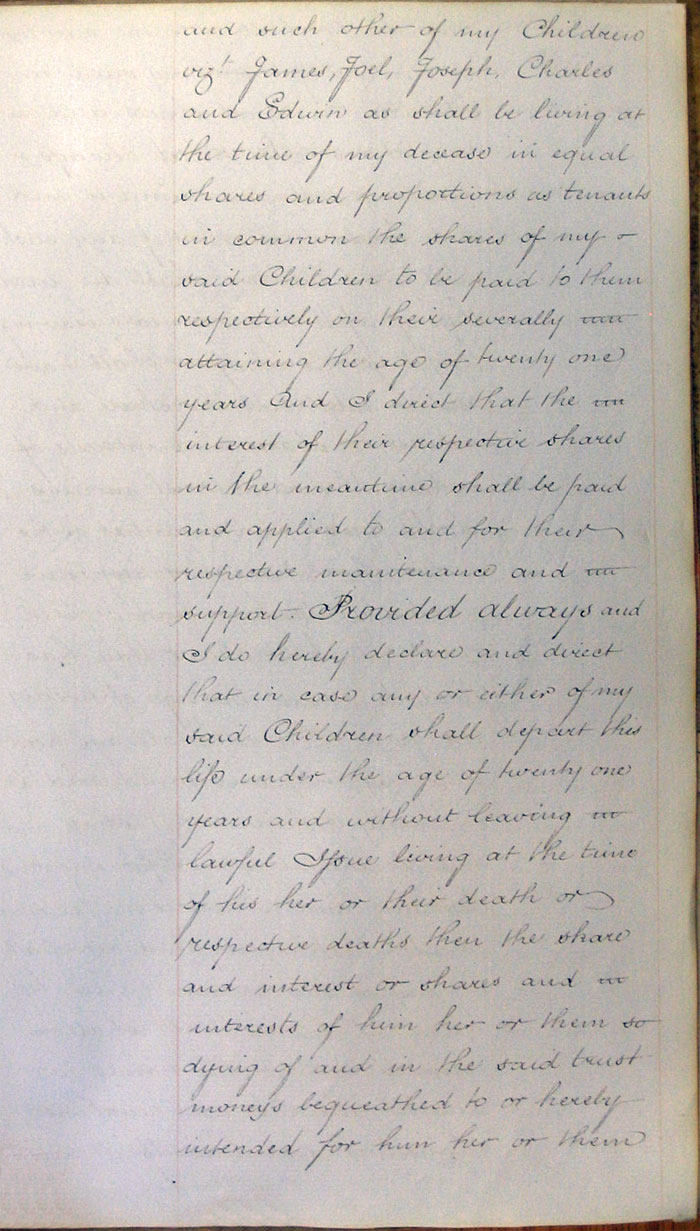 and such other of my Children
vizt James, Joel, Joseph, Charles
and Edwin as shall be living at
the time of my decease in equal
shares and proportions as tenants
in common the shares of my –
said Children to be paid to them
respectively on their severally
attaining the age of twenty one
years And I direct that the
interest of their respective shares
in the meantime shall be paid
and applied to and for their
respective maintenance and
support. Provided always and
I do hereby declare and direct
that in case any or either of my
said Children shall depart this
life under the age of twenty one
years and without leaving
lawful Issue living at the time
of his her or their death or
respective deaths then the share
and interest or shares and
interests of him her or them so
dying of and in the said trust
moneys bequeathed to or hereby
intended for him her or them